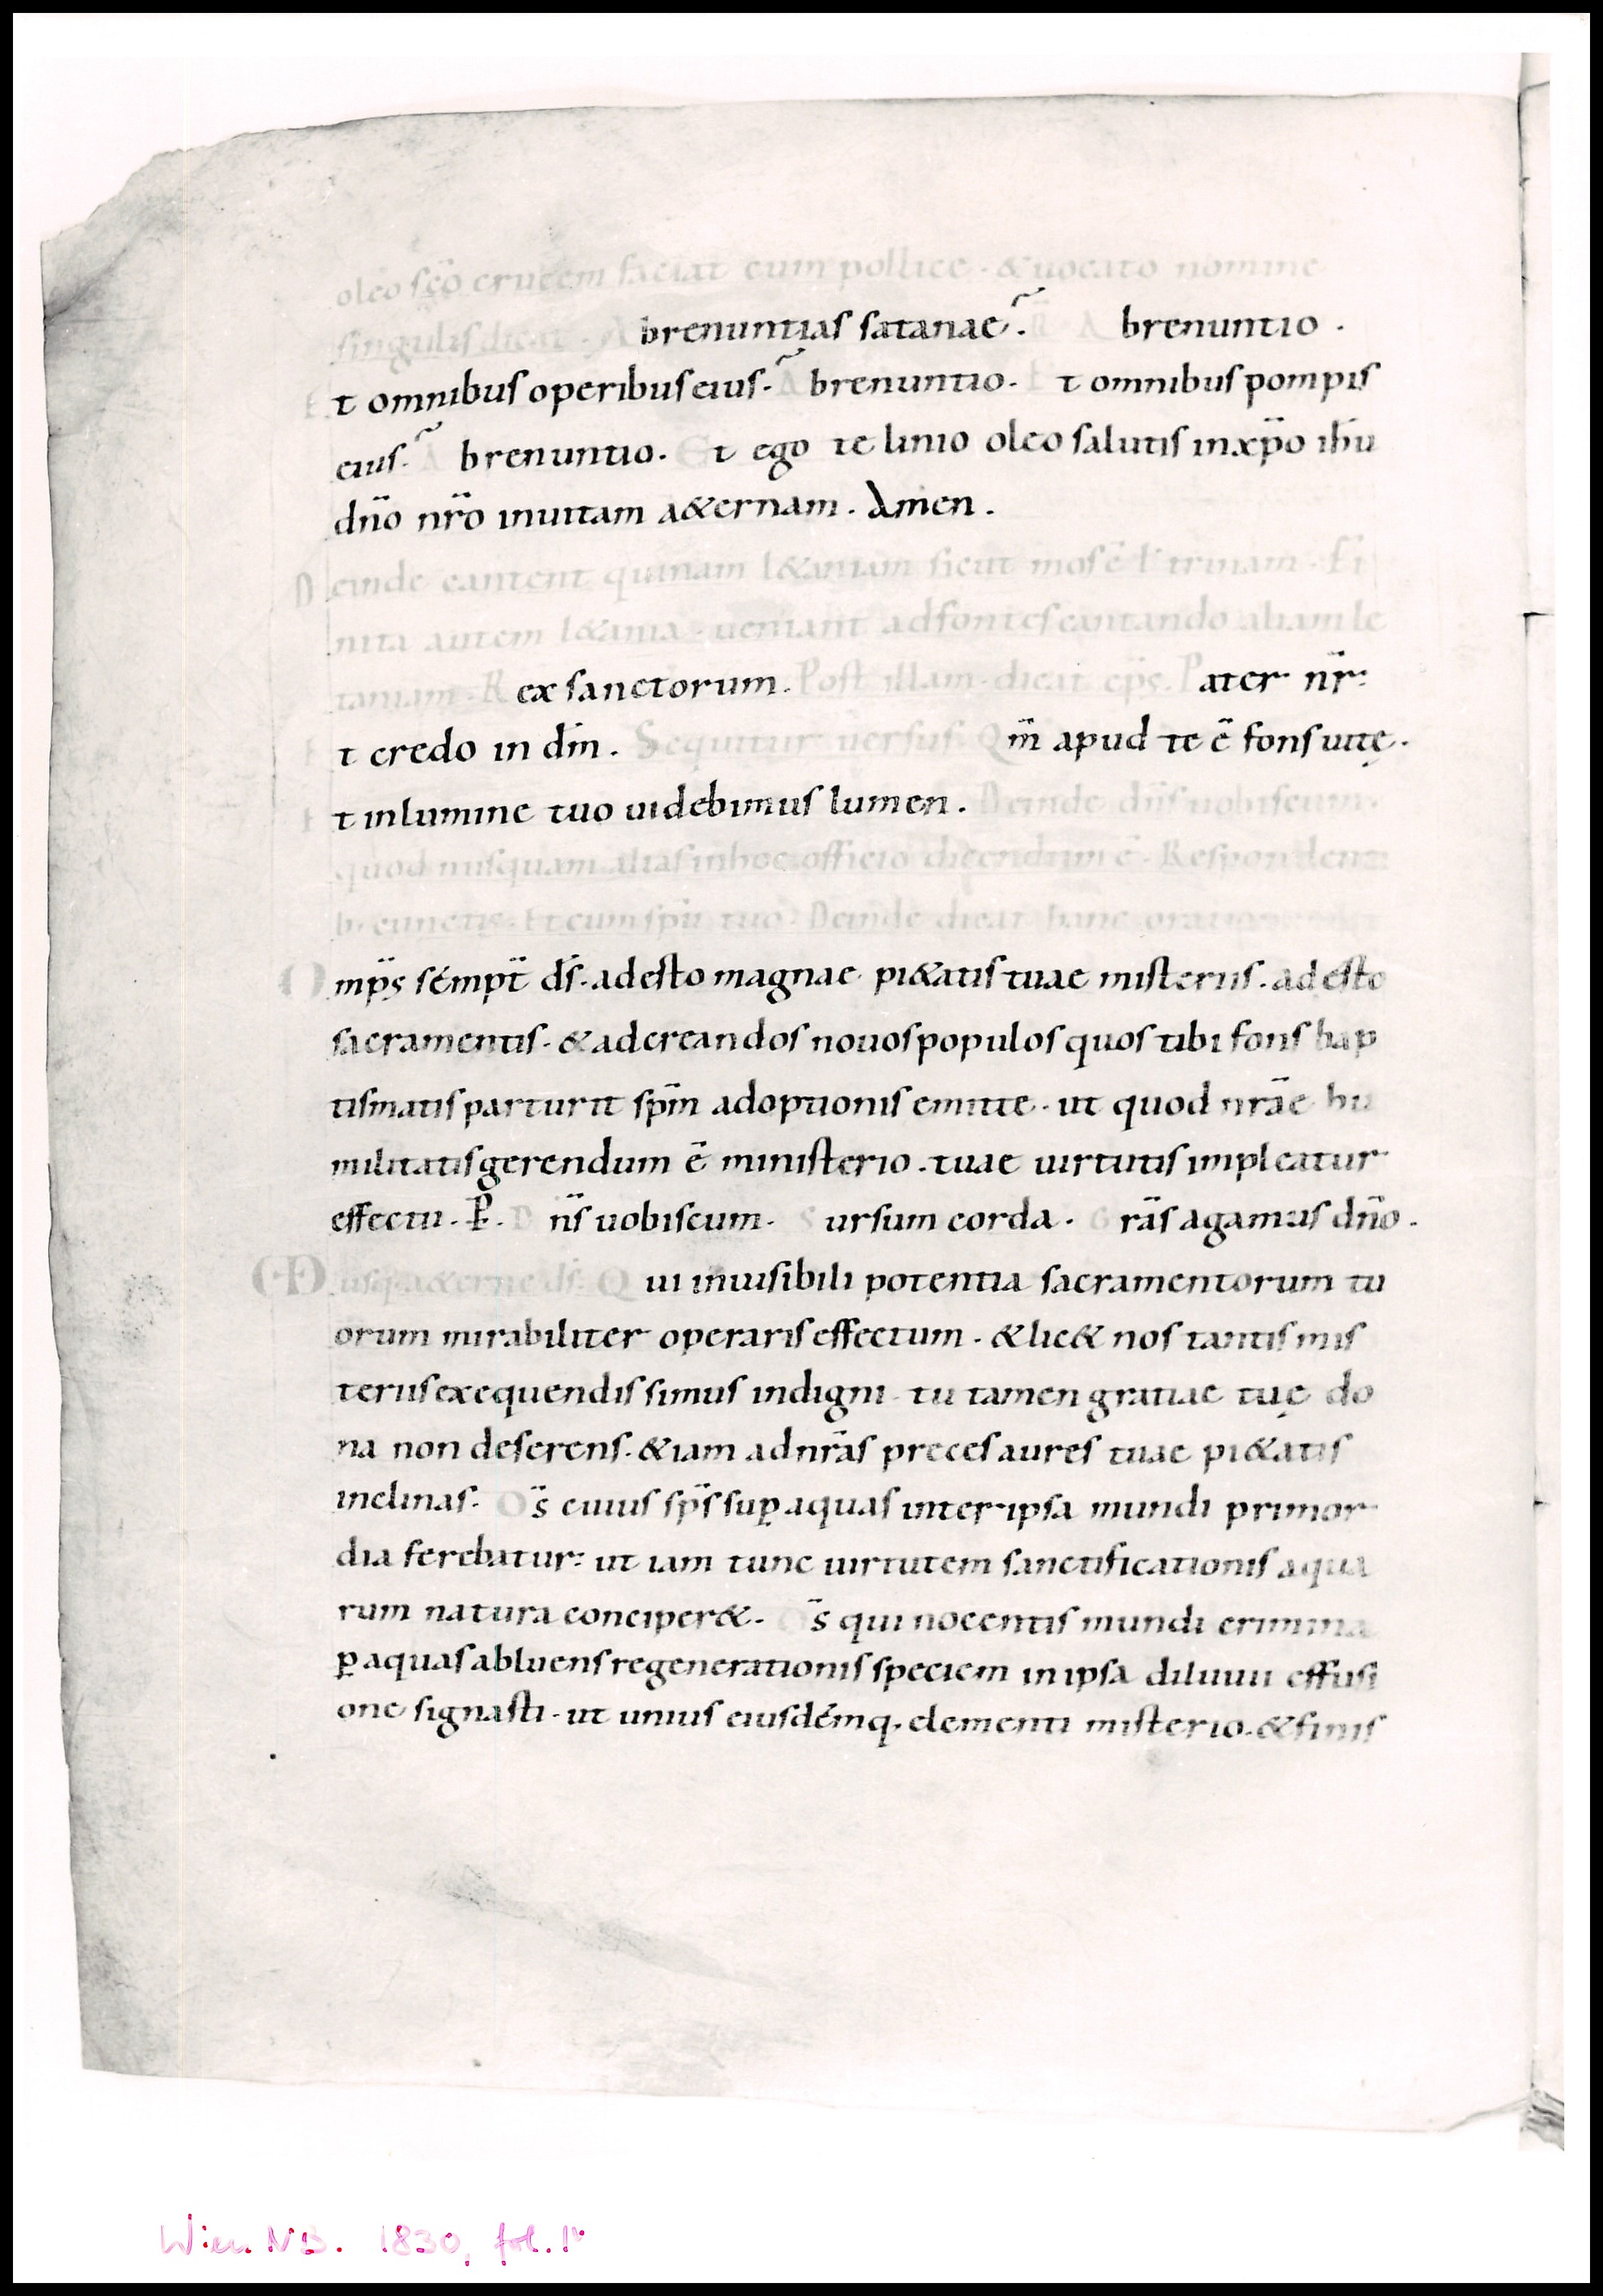 oleo sc̄o crucem faciat cum pollice · & uocato nomine
singulis dicat · Abrenuntias satanae? R Abrenuntio ·
Et omnibus operibus eius? Abrenuntio · Et omnibus pompis
eius? Abrenuntio · Et ego te linio oleo salutis in xp̄o ihū
dn̄o nr̄o inuitam a&ernam · Amen ·
Deinde cantent quinam l&aniam sicut mos ē ł trinam · Fi
nita autem l&ania · ueniant ad fontes cantando aliam le
taniam · Rex sanctorum · Post illam · dicat ep̄s · Pater nr̄:
Et credo in dm̄ · Sequitur uersus Qm̄ apud te ē fons uitę ·
Et in lumine tuo uidebimus lumen · Deinde dn̄s uobiscum ·
quod nusquam alias in hoc officio dicendum ē · Respondent
cunctis · Et cum spū tuo · Deinde dicat hanc
Omp̄s sémpt̄ ds̄ · adesto magnae pi&atis tuae misteriis · adesto
sacramentis · & ad creandos nouos populos quos tibi fons bap
tismatis parturit sp̄m adoptionis emitte · ut quod nrāe hu
militatis gerendum ē ministerio · tuae uirtutis impleatur
effectu · P · Dn̄s uobiscum · Sursum corda · Grās agamus dn̄o ·
usq; a&erne ds̄ · Qui inuisibili potentia sacramentorum tu
orum mirabiliter operaris effectum · & lic& nos tantis mis
teriis exequendis simus indigni · tu tamen gratiae tuę do
na non deserens · &iam ad nrās preces aures tuae pi&atis
inclinas · Ds̄ cuius sp̄s sup̱ aquas inter ipsa mundi primor
dia ferebatur: ut iam tunc uirtutem sanctificationis aqua
rum natura conciper& · Ds̄ qui nocentis mundi crimina
p̱ aquas abluens regenerationis speciem in ipsa diluuii effusi
one signasti · ut unius eiusdémq; elementi misterio · & finis
Wien NB. 1830, fol. 1ʳ